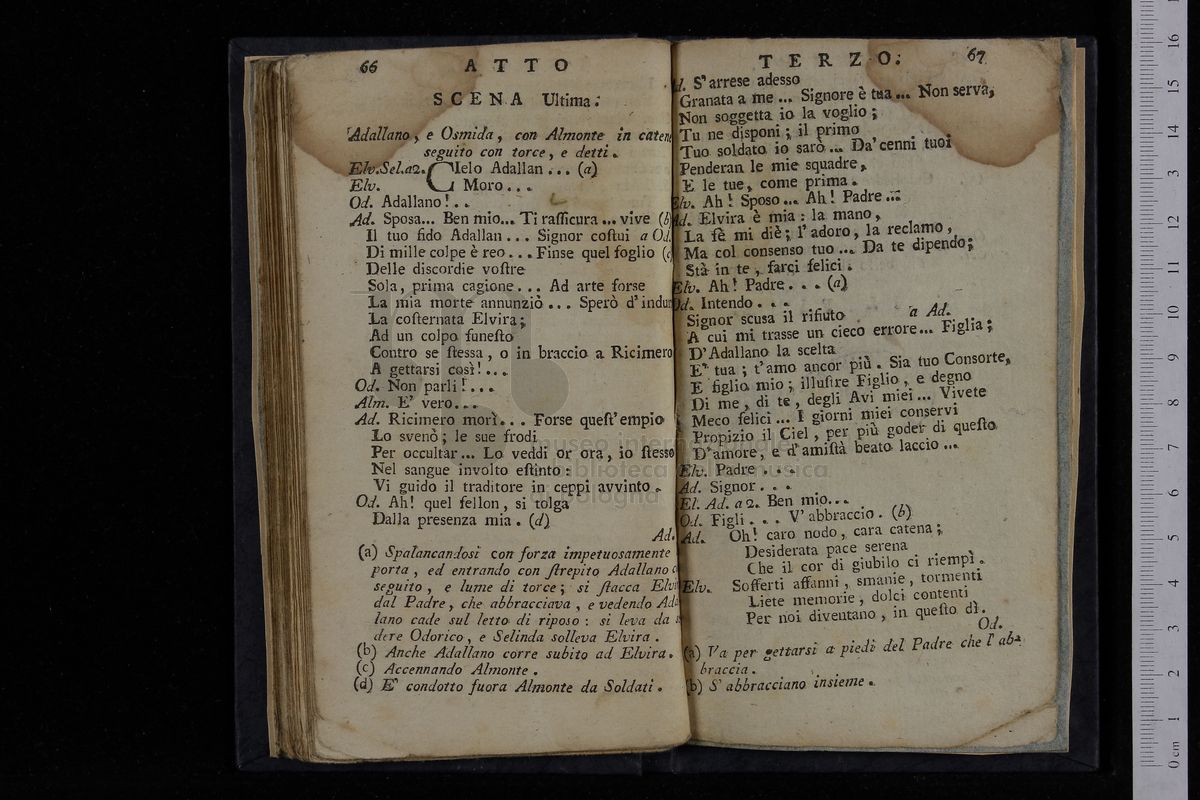 66 ATTO
SCENA Ultima.
Adallano, e Osmida, con Almonte in caten
seguito con torce, e detti.
Elv.Sel.a2. CIelo Adallan ... (a)
Elv. Moro ...
Od. Adallano! ..
Ad. Sposa... Ben mio... Ti raſſicura ... vive (b
Il tuo fido Adallan ... Signor coſtui a Od.
Di mille colpe è reo ... Finse quel foglio (c
Delle discordie voſtre
Sola, prima cagione... Ad arte forse
La mia morte annunziò ... Sperò d'indur
La coſternata Elvira;
Ad un colpo funeſto
Contro se ſtessa, o in braccio a Ricimero
A gettarsi così! ...
Od. Non parli! ...
Alm. E' vero...
Ad. Ricimero morì... Forse queſt'empio
Lo svenò; le sue frodi
Per occultar ... Lo veddi or ora, io ſtesso
Nel sangue involto eſtinto:
Vi guido il traditore in ceppi avvinto.
Od. Ah! quel fellon, si tolga
Dalla presenza mia. (d)
Ad.
(a) Spalancandosi con forza impetuosamente
porta, ed entrando con ſtrepito Adallano c
seguito, e lume di torce; si ſtacca Elvi
dal Padre, che abbracciava, e vedendo Ada
lano cade sul letto di riposo: si leva da s
dere Odorico, e Selinda solleva Elvira.
(b) Anche Adallano corre subito ad Elvira.
(c) Accennando Almonte.
(d) E' condotto fuora Almonte da Soldati.
TERZO. 67
d. S'arrese adesso
Granata a me ... Signore è tua ... Non serva,
Non soggetta io la voglio;
Tu ne disponi; il primo
Tuo soldato io sarò ... Da' cenni tuoi
Penderan le mie squadre,
E le tue, come prima.
Elv. Ah! Sposo ... Ah! Padre ...
Ad. Elvira è mia: la mano,
La fè mi diè; l'adoro, la reclamo,
Ma col consenso tuo ... Da te dipendo;
Stà in te, farci felici.
Elv. Ah! Padre ... (a)
Od. Intendo ...
Signor scusa il rifiuto a Ad.
A cui mi trasse un cieco errore... Figlia;
D'Adallano la scelta
E' tua; t'amo ancor più. Sia tuo Consorte,
E figlio mio; illuſtre Figlio, e degno
Di me, di te, degli Avi miei ... Vivete
Meco felici ... I giorni miei conservi
Propizio il Ciel, per più goder di queſto
D'amore, e d'amiſtà beato laccio ...
Elv. Padre ...
Ad. Signor ...
El. Ad. a 2. Ben mio...
Od. Figli ... V'abbraccio. (b)
Ad. Oh! caro nodo, cara catena;
Desiderata pace serena
Che il cor di giubilo ci riempì.
Elv. Sofferti affanni, smanie, tormenti
Liete memorie, dolci contenti
Per noi diventano, in queſto dì.
Od.
(a) Va per gettarsi a piedi del Padre che l'ab-
braccia.
(b) S'abbracciano insieme.
museo internazionale
biblioteca della musica
di bologna
0 cm 1 2 3 4 5 6 7 8 9 10 11 12 13 14 15 16